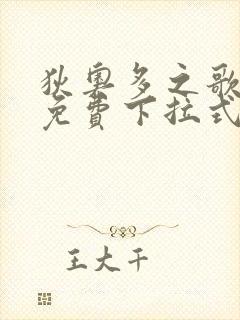 狄奥多之歌
免費下拉式
王大千